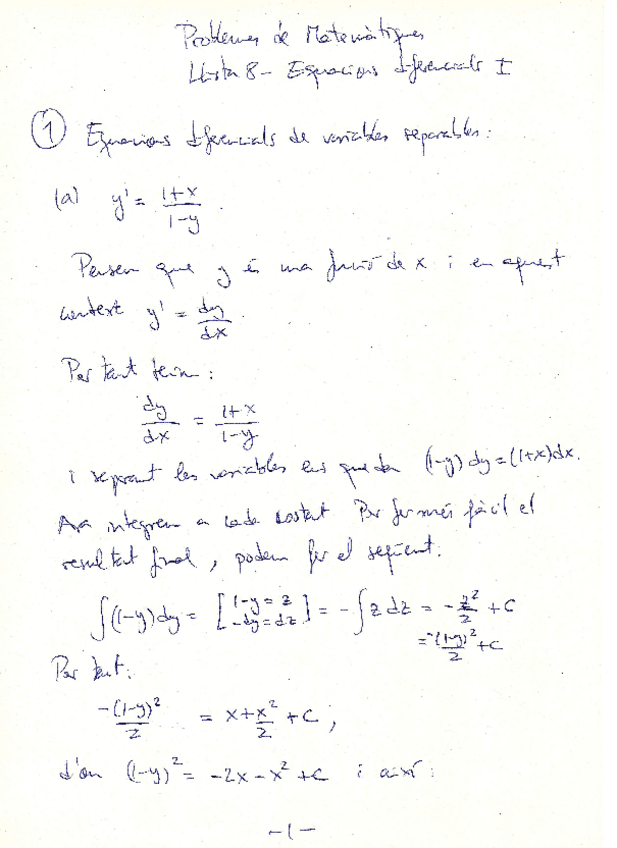 Problemes de Matemàtiques
Llista 8 - Equacions diferencials I
① Equacions diferencials de variables separables:
(a) y' = (1+x)/(1-y)
Pensem que y és una funció de x i en aquest
context y' = dy/dx.
Per tant tenim:
dy/dx = (1+x)/(1-y)
i separant les variables ens queda (1-y)dy = (1+x)dx.
Ara integrem a cada costat. Per fer més fàcil el
resultat final, podem fer el següent:
∫(1-y)dy = [1-y = z, -dy = dz] = -∫z dz = -z²/2 + C
= -(1-y)²/2 + C
Per tant:
-(1-y)²/2 = x + x²/2 + C;
d'on (1-y)² = -2x - x² + C i així:
-1-